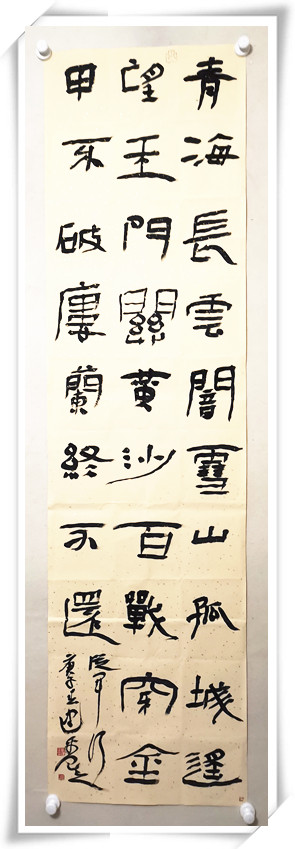 青海長雲闇雪山孤城遥
望玉門關黄沙百戰穿金
甲不破廔蘭終不還
從軍行
庚子